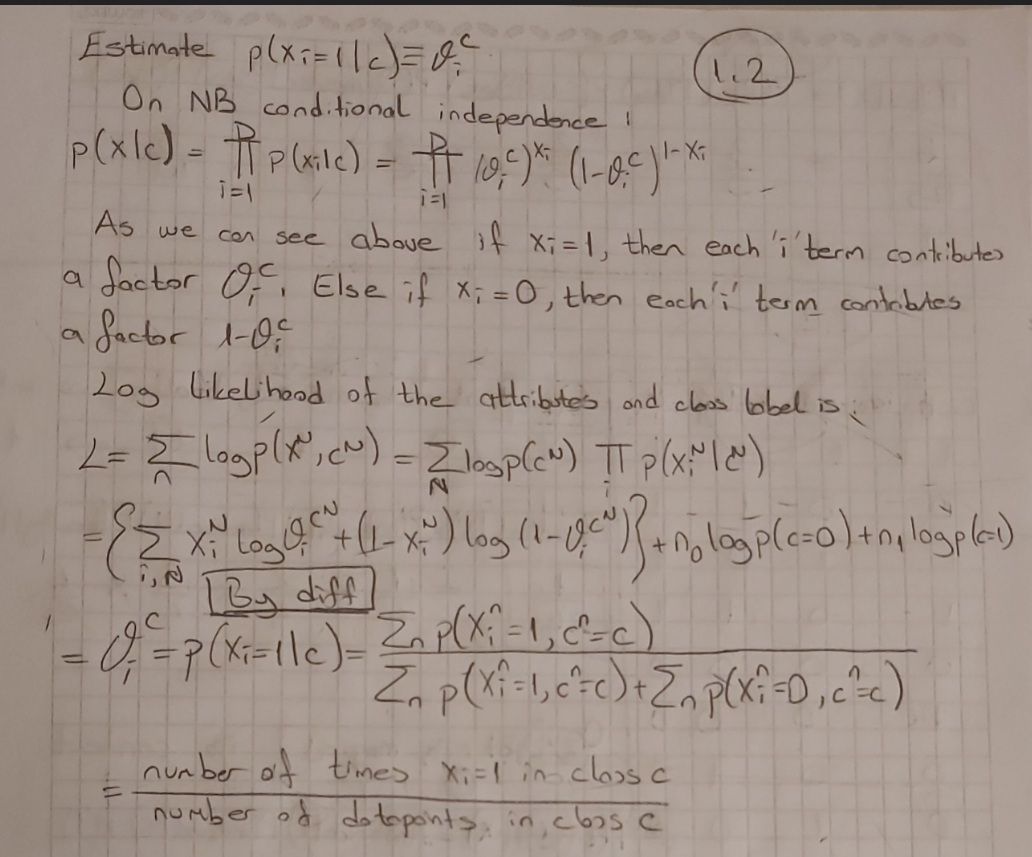 Estimate p(xi=1|c)≡θᵢᶜ
1.2
On NB conditional independence :
p(x|c) = ∏ᴰᵢ₌₁ p(xi|c) = ∏ᴰᵢ₌₁ (θᵢᶜ)^xi (1-θᵢᶜ)^1-xi
As we can see above if xi=1, then each 'i' term contributes
a factor θᵢᶜ. Else if xi=0, then each 'i' term contributes
a factor 1-θᵢᶜ
Log likelihood of the attributes and class label is:
L= ∑ₙ log p(x^N, c^N) = ∑_N log p(c^N) ∏ᵢ p(xᵢ^N|c^N)
={∑_i,N xᵢ^N log θᵢ^c^N + (1-xᵢ^N) log (1-θᵢ^c^N)} + n₀ log p(c=0) + n₁ log p(c=1)
By diff
= θᵢᶜ = p(xi=1|c) = ∑n p(xᵢⁿ=1, cⁿ=c)
∑n p(xᵢⁿ=1, cⁿ=c) + ∑n p(xᵢⁿ=0, cⁿ=c)
= number of times xi=1 in class c
number of datapoints in class c